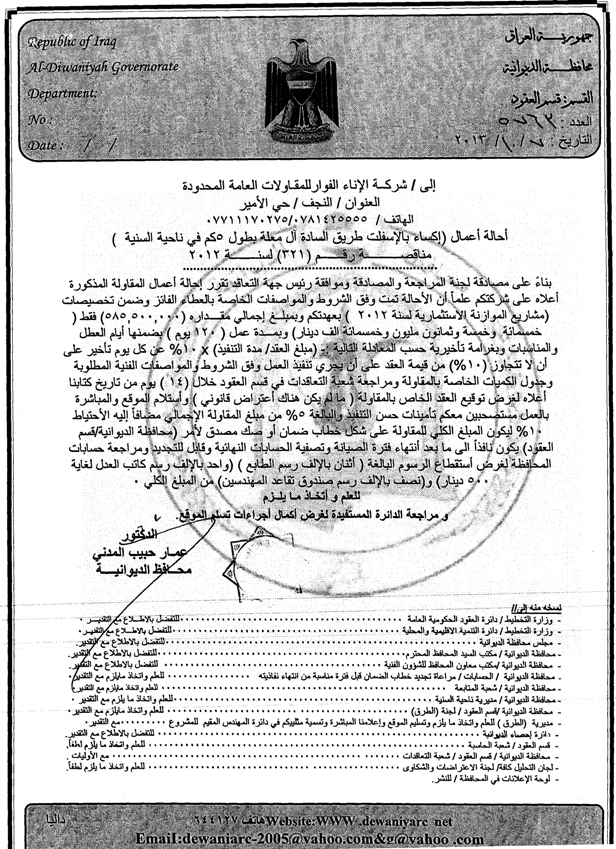 Republic of Iraq
جمهورية العراق
Al-Diwaniyah Governorate
محافظة الديوانية
Department:
القسم: قسم العقود
No :
العدد: ٥٧٦٣
Date : / /
التاريخ : ٢٠١٣/١٠/٧
إلى / شركة الإناء الفوار للمقاولات العامة المحدودة
العنوان / النجف / حي الأمير
الهاتف / ٠٧٨١٤٢٥٥٥٥/٠٧٧١١١٧٠٢٧٥
أحالة أعمال (إكساء بالإسفلت طريق السادة آل معلة بطول ٥كم في ناحية السنية )
مناقصة رقم (٣٢١) لسنة ٢٠١٢
بناءً على مصادقة لجنة المراجعة والمصادقة وموافقة رئيس جهة التعاقد تقرر إحالة أعمال المقاولة المذكورة
أعلاه على شركتكم علماً أن الأحالة تمت وفق الشروط والمواصفات الخاصة بالعطاء الفائز وضمن تخصيصات
(مشاريع الموازنة الأستثمارية لسنة ٢٠١٢ ) بعهدتكم وبمبلغ إجمالي مقداره (٥٨٥,٥٠٠,٠٠٠) فقط (
خمسمائة وخمسة وثمانون مليون وخمسمائة الف دينار) وبمدة عمل (١٢٠ يوم ) بضمنها أيام العطل
والمناسبات وبغرامة تأخيرية حسب المعادلة التالية :- (مبلغ العقد/ مدة التنفيذ) x ١٠% عن كل يوم تأخير على
أن لا تتجاوز (١٠%) من قيمة العقد على أن يجري تنفيذ العمل وفق الشروط والمواصفات الفنية المطلوبة
وجدول الكميات الخاصة بالمقاولة ومراجعة شعبة التعاقدات في قسم العقود خلال (١٤) يوم من تاريخ كتابنا
أعلاه لغرض توقيع العقد الخاص بالمقاولة ( ما لم يكن هناك أعتراض قانوني ) وأستلام الموقع والمباشرة
بالعمل مستصحبين معكم تأمينات حسن التنفيذ والبالغة ٥% من مبلغ المقاولة الإجمالي مضافاً إليه الأحتياط
١٠% ليكون المبلغ الكلي للمقاولة على شكل خطاب ضمان أو صك مصدق لأمر (محافظة الديوانية/قسم
العقود) يكون نافذاً الى ما بعد أنتهاء فترة الصيانة وتصفية الحسابات النهائية وقابل للتجديد ومراجعة حسابات
المحافظة لغرض أستقطاع الرسوم البالغة ( أثنان بالإلف رسم الطابع ) (واحد بالإلف رسم كاتب العدل لغاية
٥٠٠ دينار) و(نصف بالإلف رسم صندوق تقاعد المهندسين) من المبلغ الكلي .
للعلم و أتخاذ ما يلزم
و مراجعة الدائرة المستفيدة لغرض أكمال أجراءات تسلم الموقع.
الدكتور
عمار حبيب المدني
محافظ الديوانية
نسخه منه إلى//
- وزارة التخطيط / دائرة العقود الحكومية العامة للتفضل بالإطلاع مع التقدير .
- وزارة التخطيط / دائرة التنمية الاقليمية والمحلية للتفضل بالإطلاع مع التقدير .
- مجلس محافظة الديوانية للتفضل بالاطلاع مع التقدير.
- محافظة الديوانية / مكتب السيد المحافظ المحترم للتفضل بالاطلاع مع التقدير.
- محافظة الديوانية /مكتب معاون المحافظ للشؤون الفنية للتفضل بالاطلاع مع التقدير.
- محافظة الديوانية / الحسابات / مراعاة تجديد خطاب الضمان قبل فترة مناسبة من انتهاء نفاذيته للعلم واتخاذ مايلزم مع التقدير.
- محافظة الديوانية / شعبة المتابعة للعلم واتخاذ مايلزم مع التقدير
- محافظة الديوانية / مديرية ناحية السنية للعلم واتخاذ ما يلزم مع التقدير.
- محافظة الديوانية /قسم العقود / لجنة (الطرق) للعلم واتخاذ مايلزم مع التقدير.
- مديرية (الطرق ) للعلم واتخاذ ما يلزم وتسليم الموقع وإعلامنا المباشرة وتسمية ممثليكم في دائرة المهندس المقيم للمشروع مع التقدير.
- دائرة إحصاء الديوانية للتفضل بالاطلاع مع التقدير.
- قسم العقود / شعبة الحاسبة للعلم واتخاذ ما يلزم لطفاً.
- محافظة الديوانية / قسم العقود / شعبة التعاقدات مع الأوليات .
- لجان التحليل كافة/ لجنة الاعتراضات والشكاوى للعلم واتخاذ ما يلزم لطفاً.
- لوحة الإعلانات في المحافظة / للنشر.
داليا
هاتف ٦٤٤١٢٧ Website:WWW .dewaniyarc net
Email:dewaniarc-2005@yahoo.com&g@vahoo .com